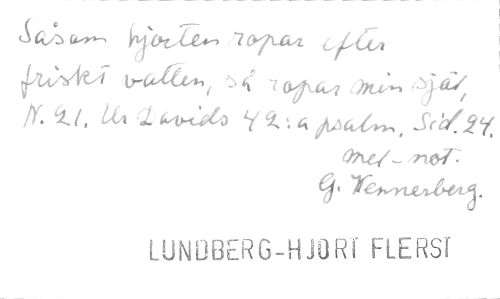 Såsom hjorten ropar efter
friskt vatten, så ropar min själ,
N. 21. Ur Davids 42:a psalm, Sid. 24.
mel-not.
G. Wennerberg.
LUNDBERG-HJORT FLERST